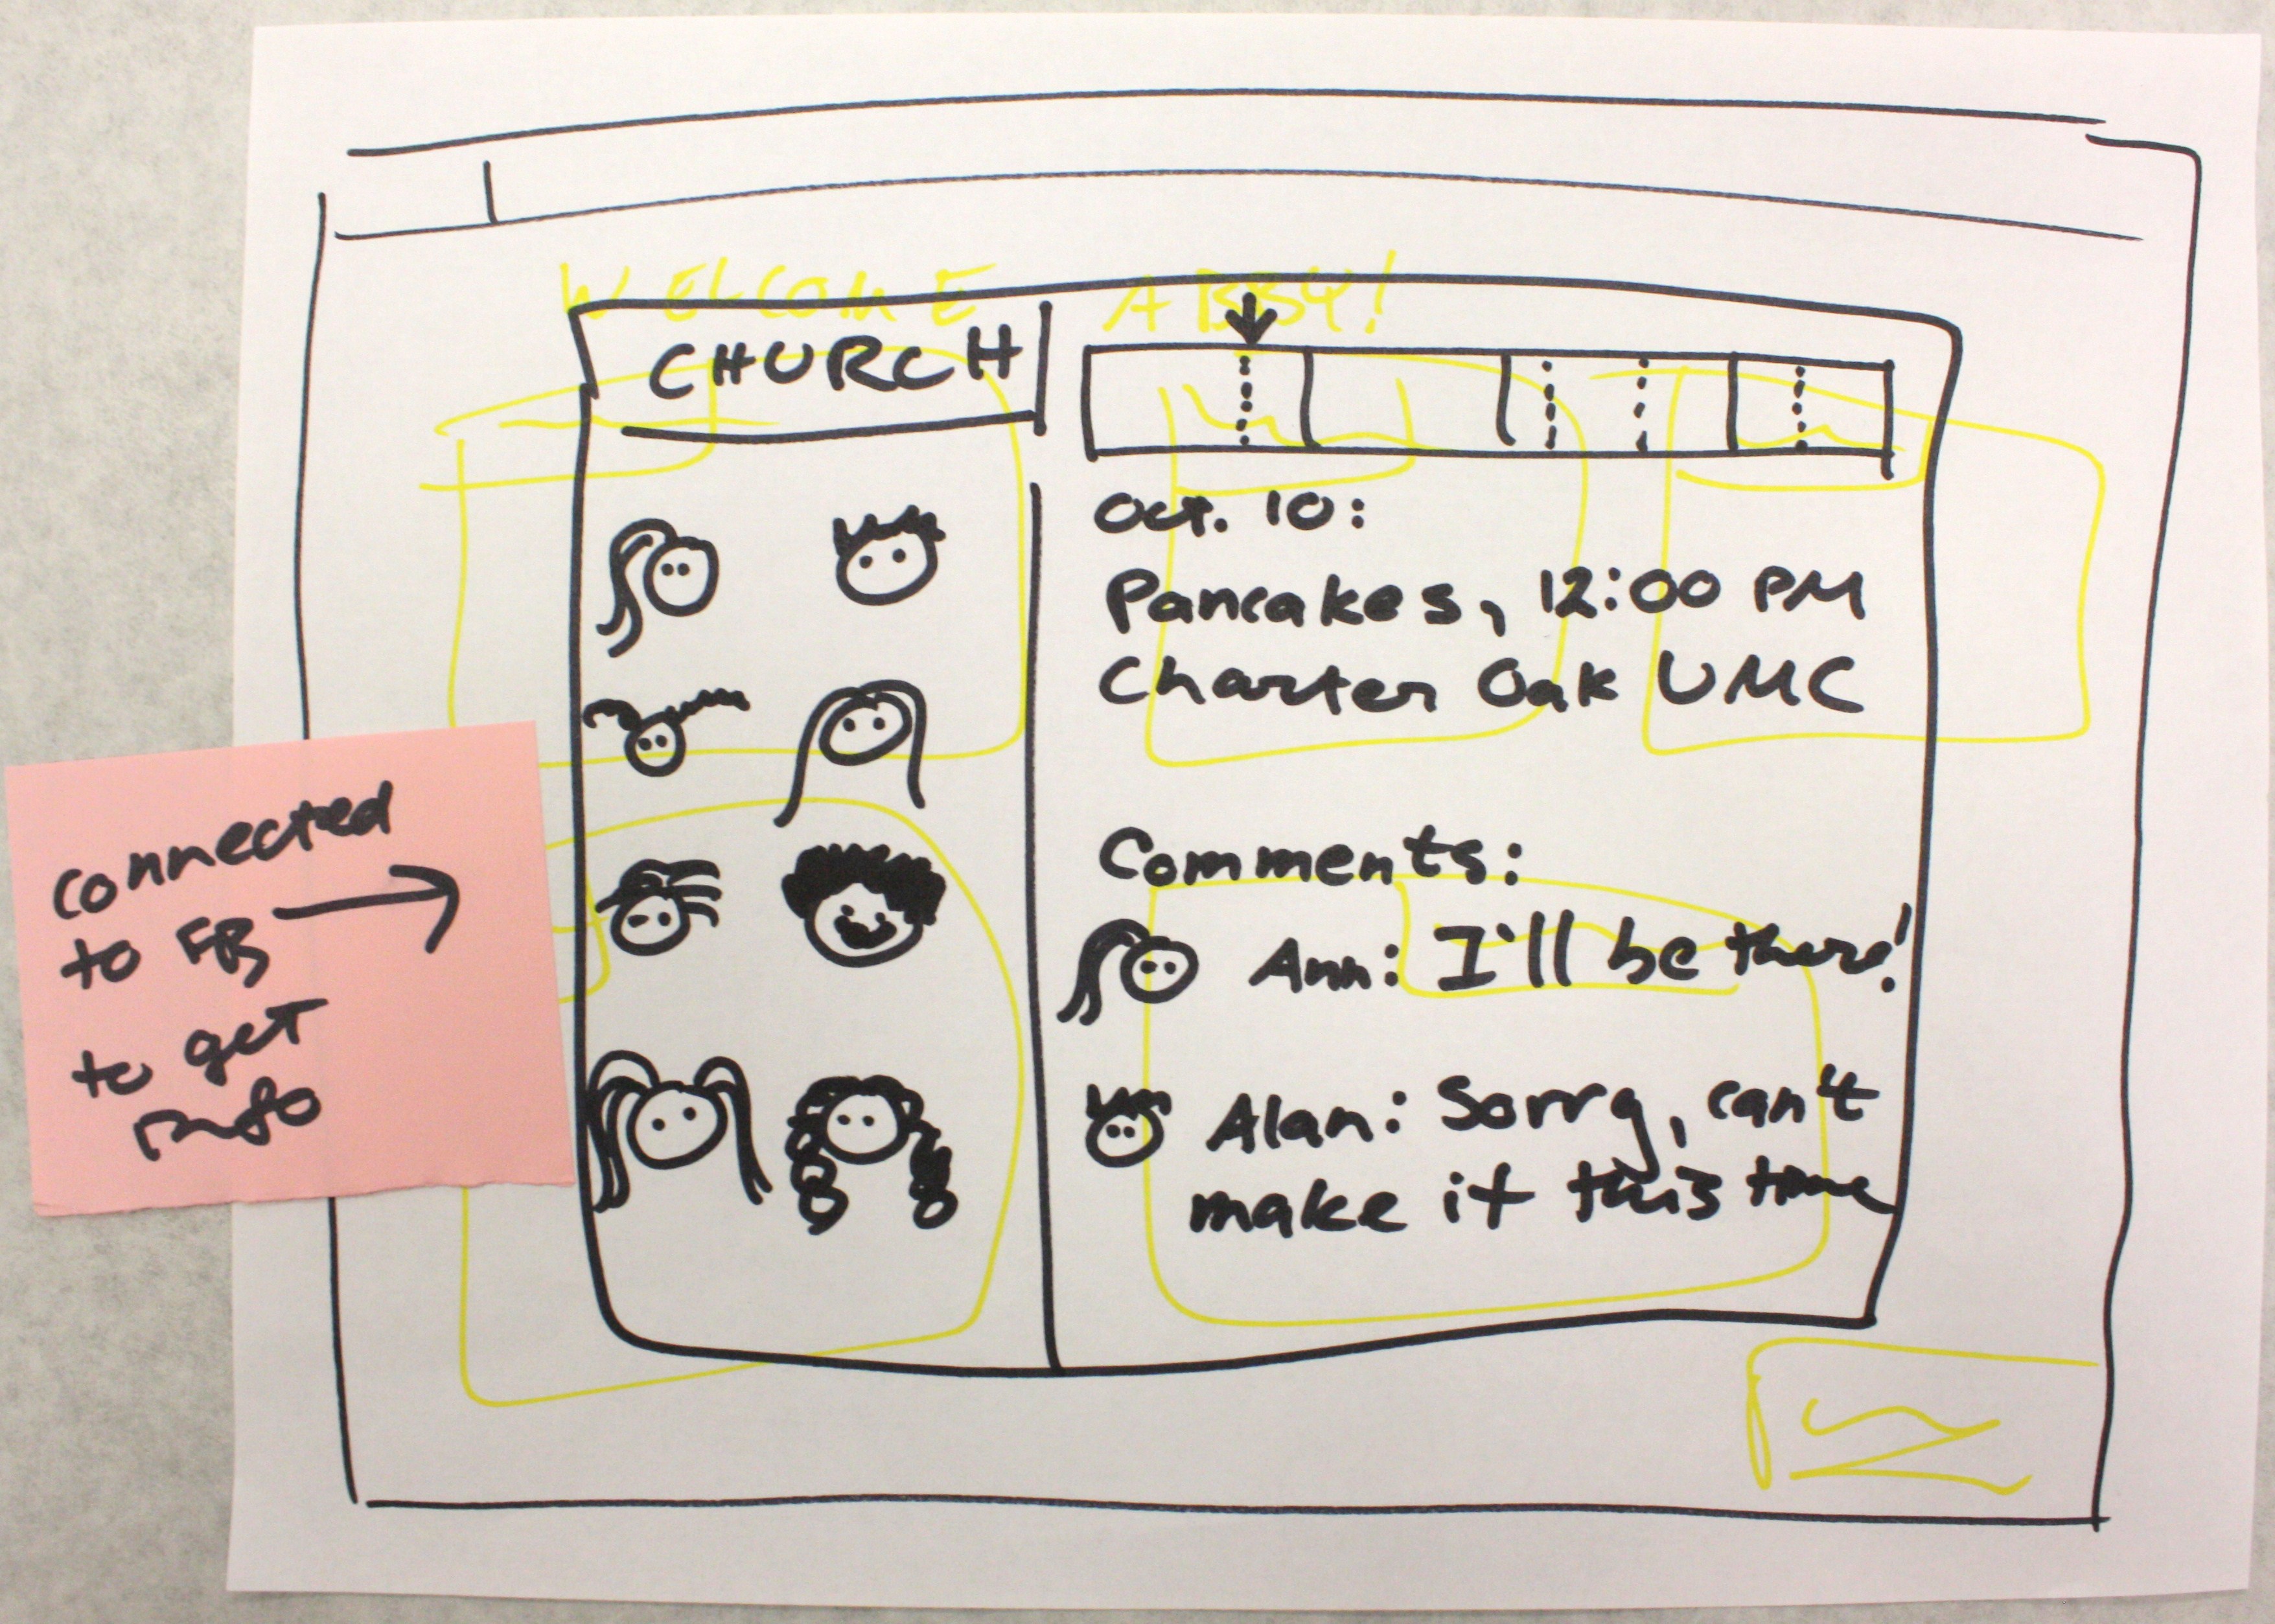 WELCOME ABBY!
CHURCH
Oct. 10:
Pancakes, 12:00 PM
Charter Oak UMC
Comments:
Ann: I'll be there!
Alan: Sorry, can't
make it this time
connected
to FB
to get
info